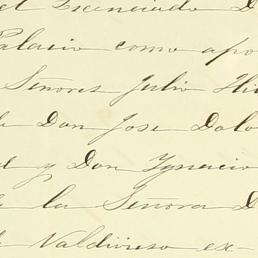 el Licenciado D
Palacio como apo
Señores Julio
a Don Jose Dolo
l y Don Ygnacio
la Señora D
e Valdivieso ex-